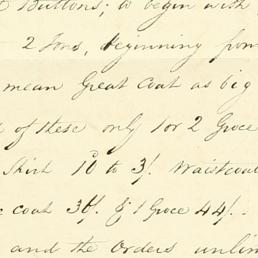 Buttons; to begin with
2 Tons, beginning from
mean Great Coat as big
of these only 1 or 2 Groce
Shirt 10d to 3/. Waistcoat
coat 36/. & 1 Groce 44/.
and the orders unlim